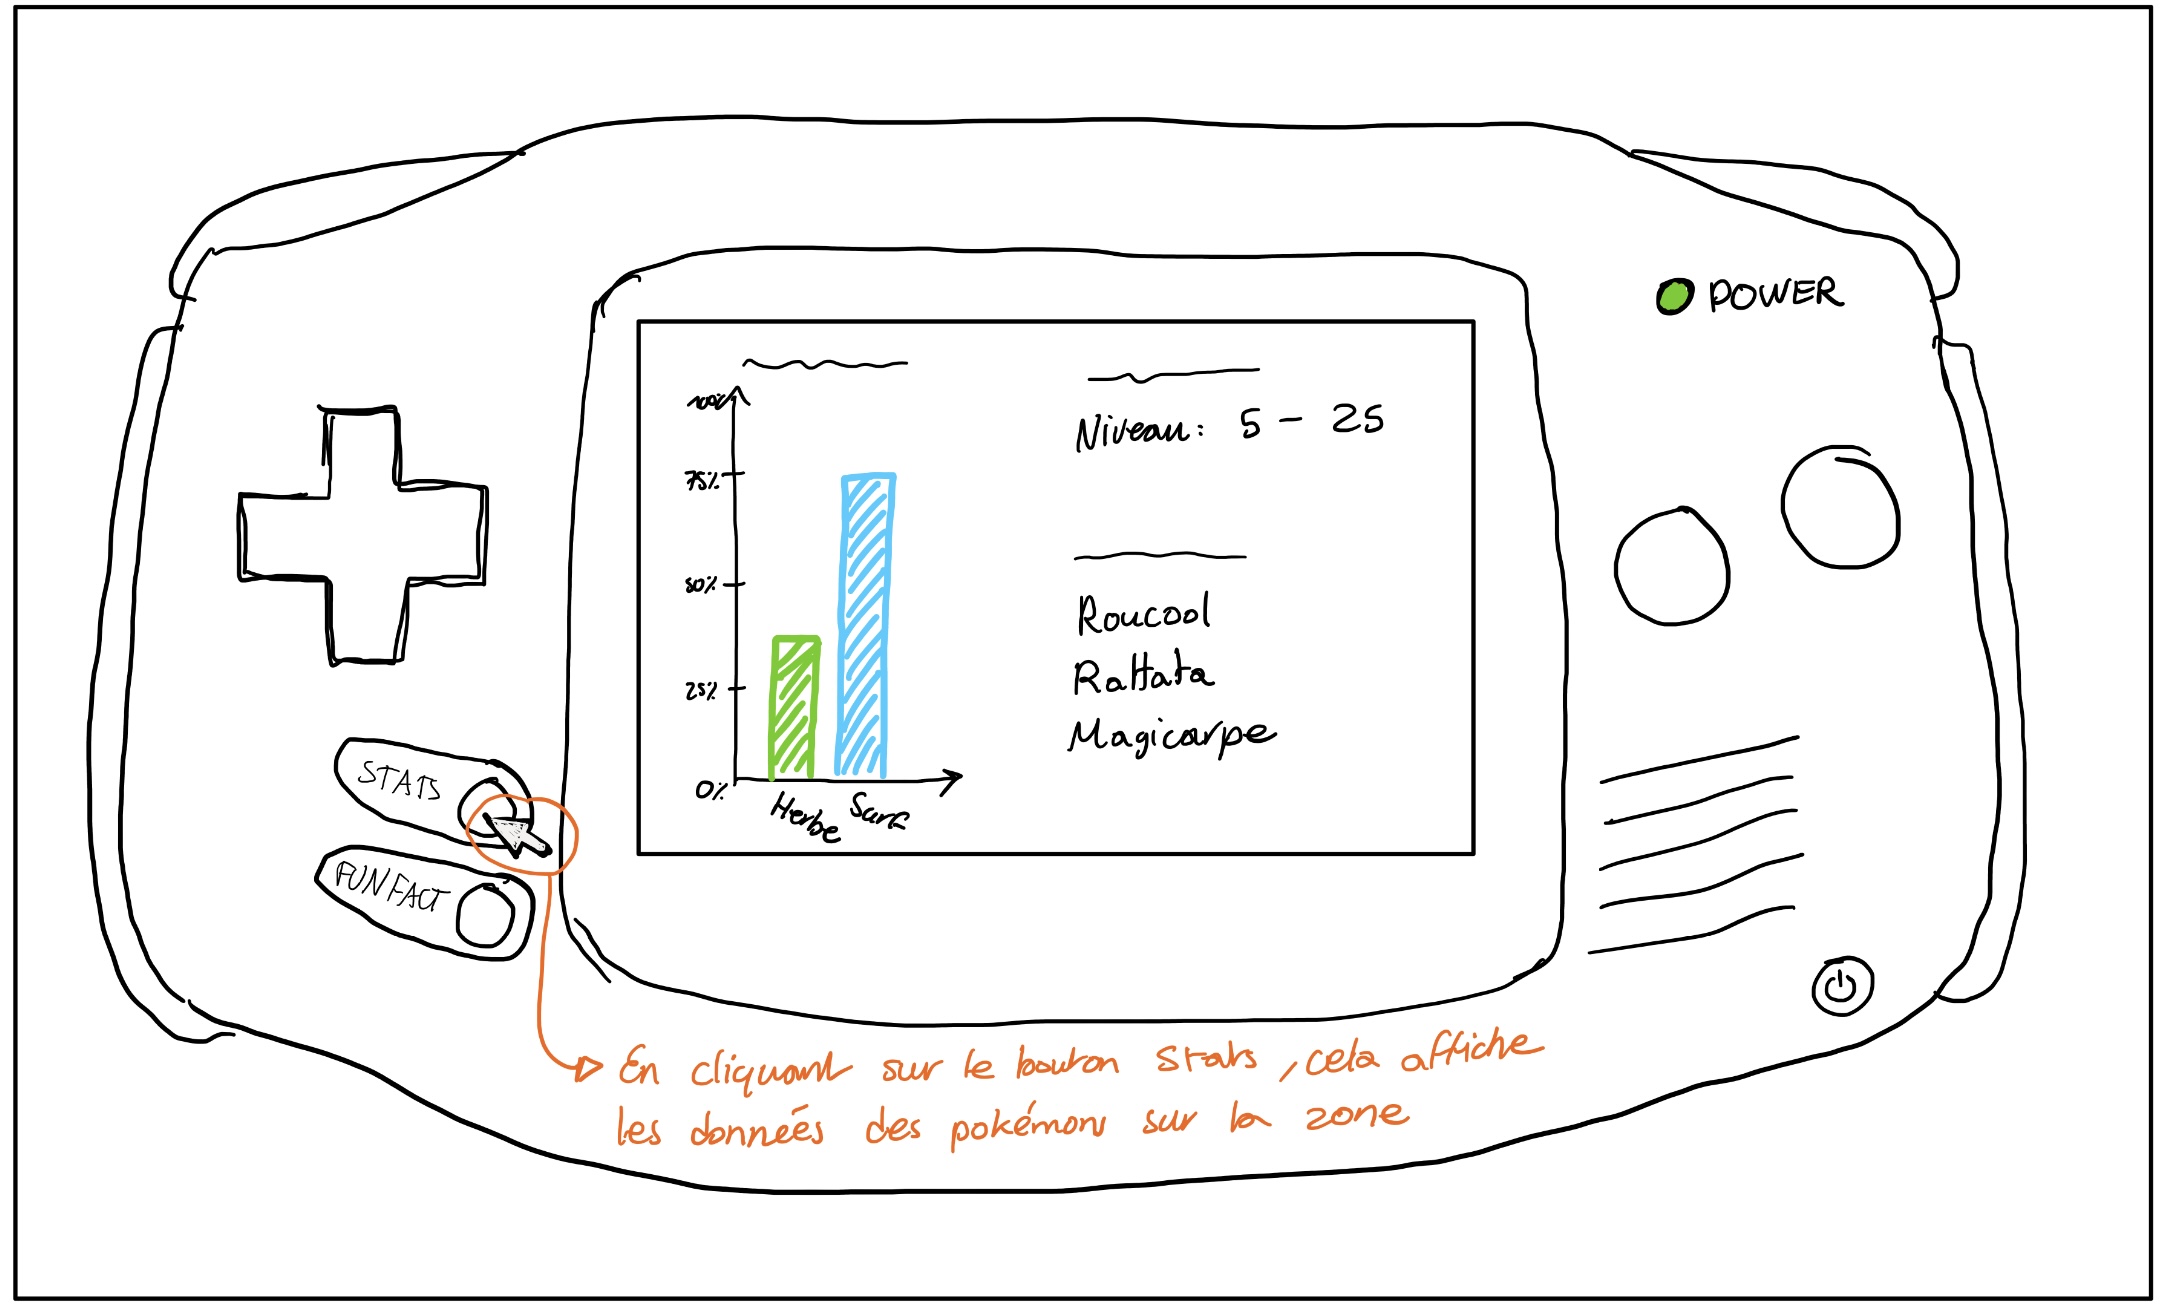 POWER
100%
75%
50%
25%
0%
Herbe
Surf
Niveau: 5 - 25
Roucool
Rattata
Magicarpe
STATS
FUN FACT
En cliquant sur le bouton Stats, cela affiche
les données des pokémons sur la zone